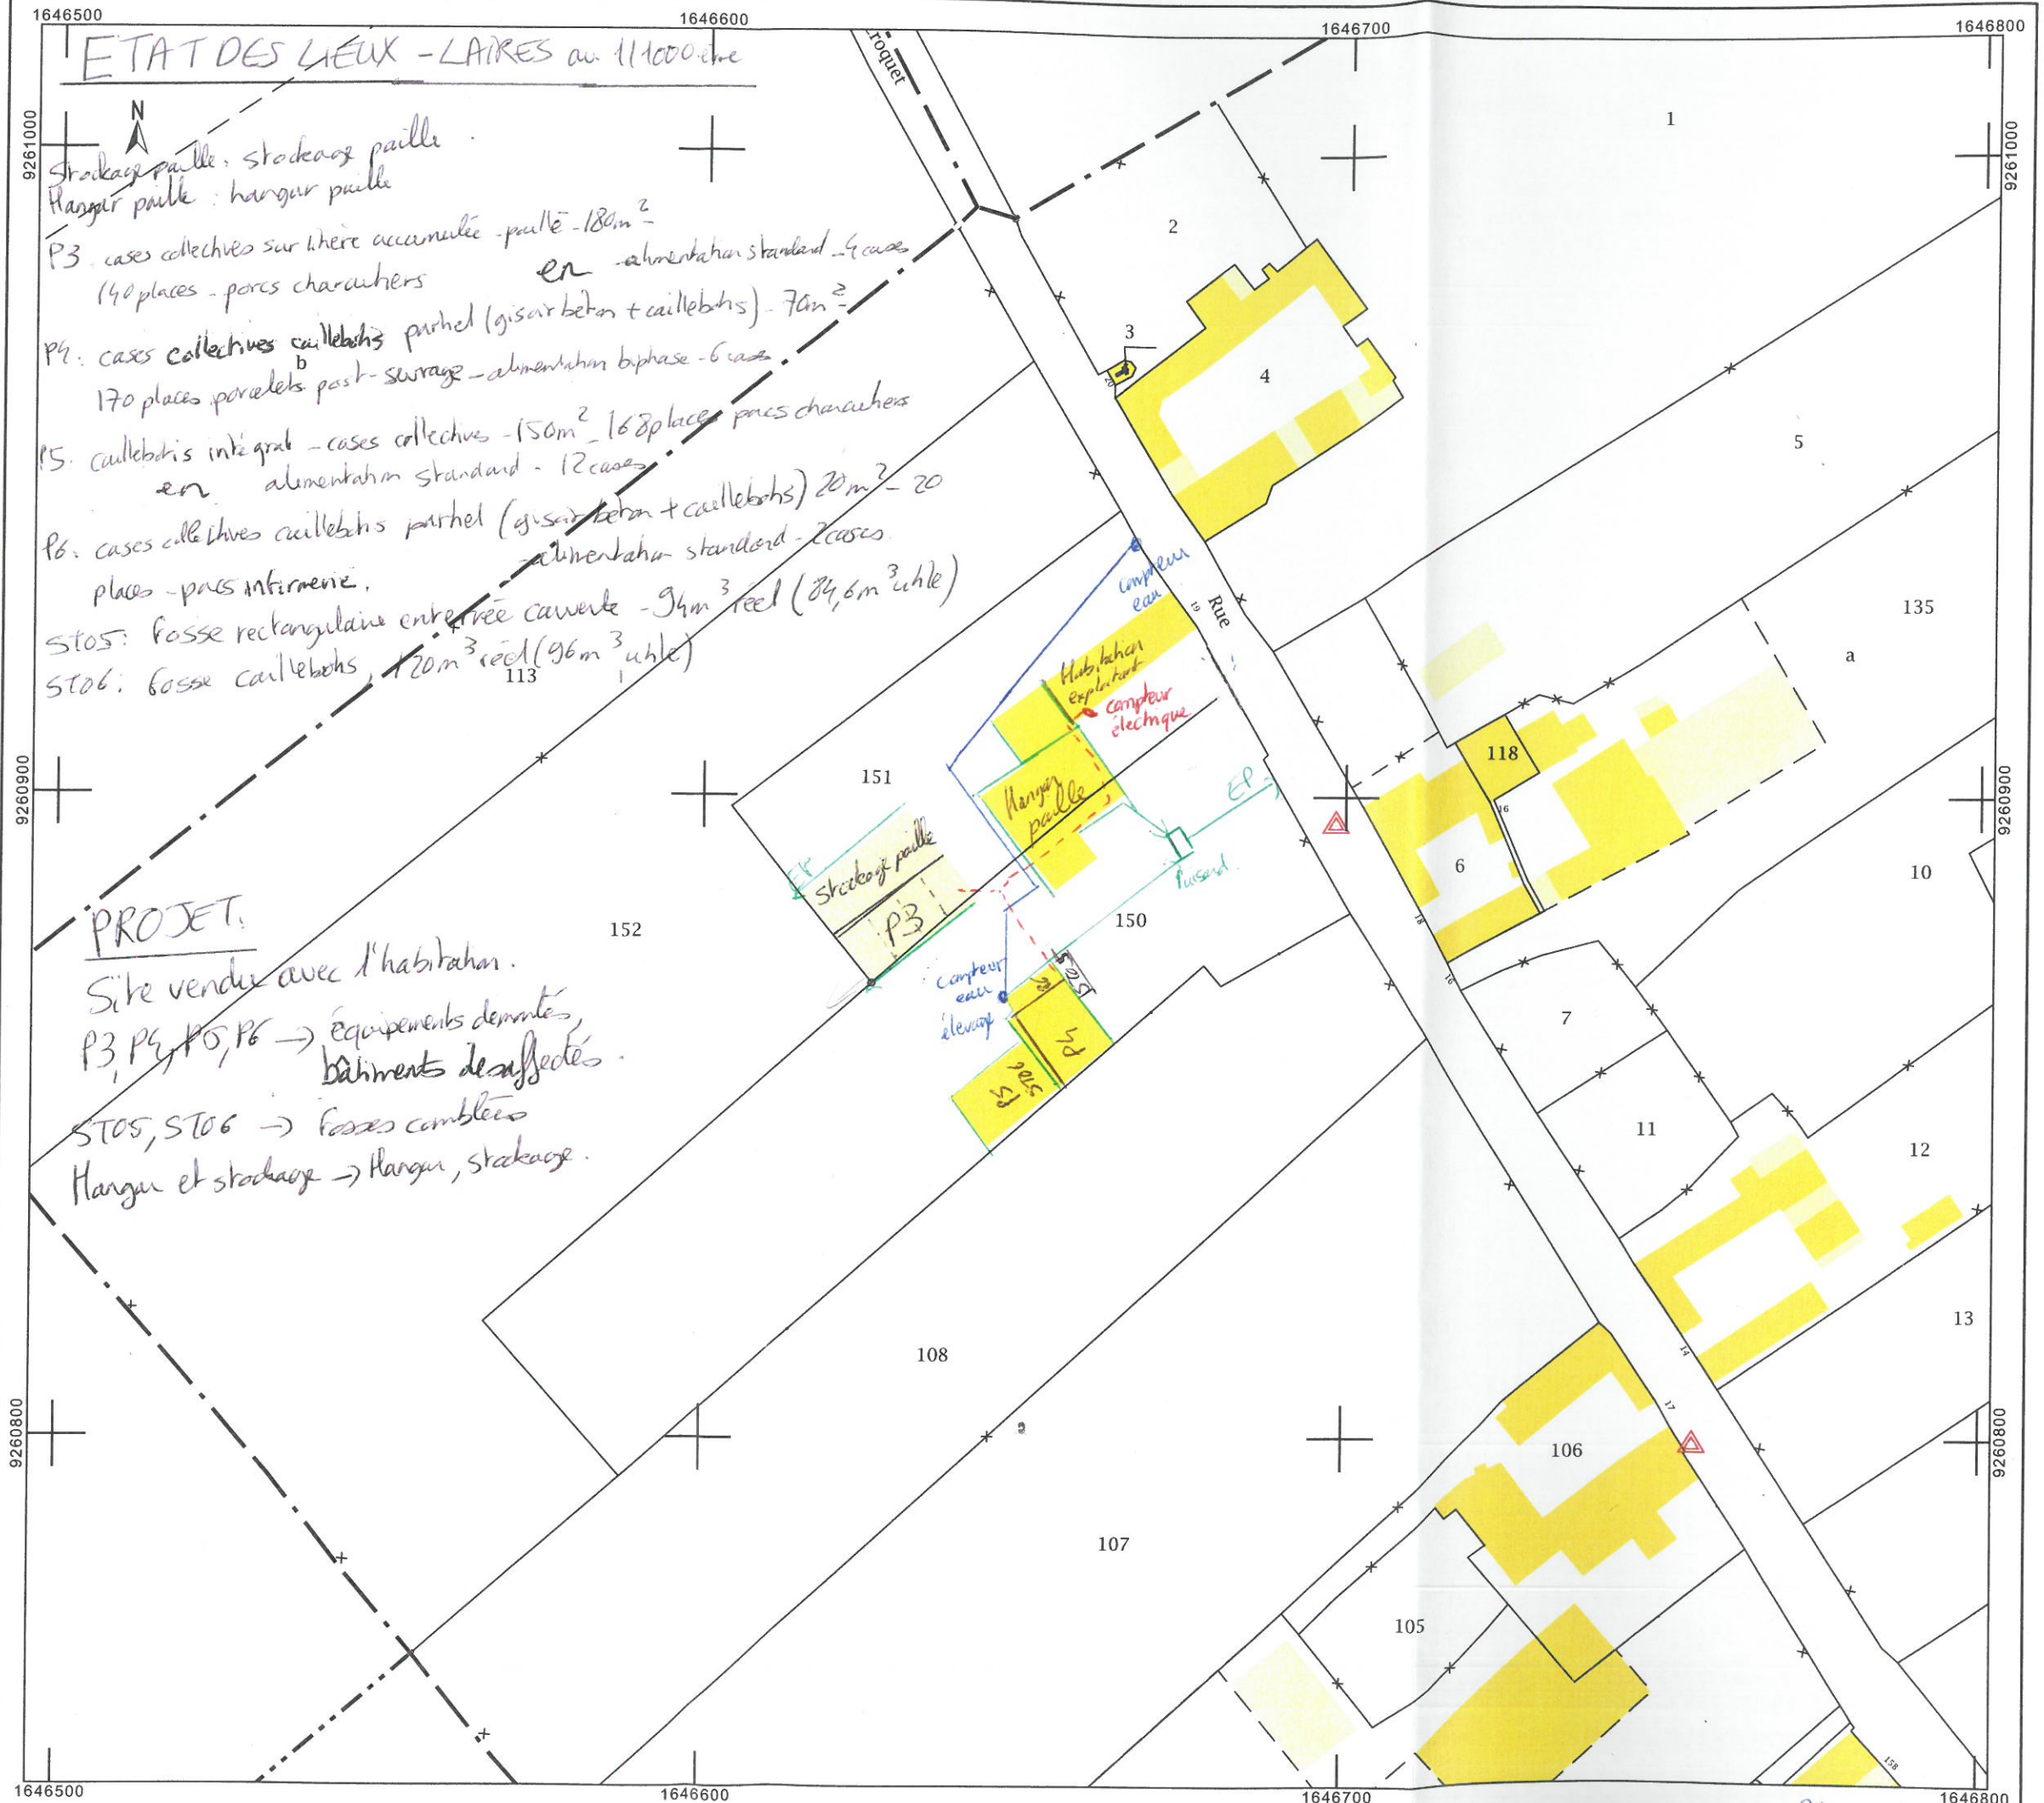 1646500
1646600
1646700
1646800
ETAT DES LIEUX - LAIRES au 1/1000 ème
N
9261000
9261000
Stockage paille : stockage paille
Hangar paille : hangar paille
P3 cases collectives sur litière accumulée - paille - 180m²
140 places - porcs charcutiers en alimentation standard - 4 cases
P4 : cases collectives caillebotis partiel (gisoir béton + caillebotis) - 70m²
170 places porcelets post-sevrage - alimentation biphase - 6 cases
P5. caillebotis intégral - cases collectives - 150m² - 168 places porcs charcutiers
en alimentation standard - 12 cases
P6 : cases collectives caillebotis partiel (gisoir béton + caillebotis) 20m² - 20
places - porcs infirmerie. - alimentation standard - 2 cases
STO5 : fosse rectangulaire enterrée couverte - 94m³ réel (84,6m³ utile)
STO6 : fosse caillebotis, 120m³ réel (96m³ utile)
113
PROJET.
Site vendu avec l'habitation.
P3, P4, P5, P6 → équipements démontés,
bâtiments désaffectés.
STO5, STO6 → fosses comblées
Hangar et stockage → Hangar, stockage.
9260900
9260900
9260800
9260800
croquet
Rue
1
2
3
20
4
5
135
a
compteur
eau
19
Habitation
exploitant
compteur
électrique
151
Hangar
paille
EP
Puisard
EP
Stockage paille
P3
152
150
compteur
eau
élevage
STO5
P6
P4
STO6
P5
118
16
6
18
16
10
7
11
12
13
14
17
108
107
106
105
15B
1646500
1646600
1646700
1646800